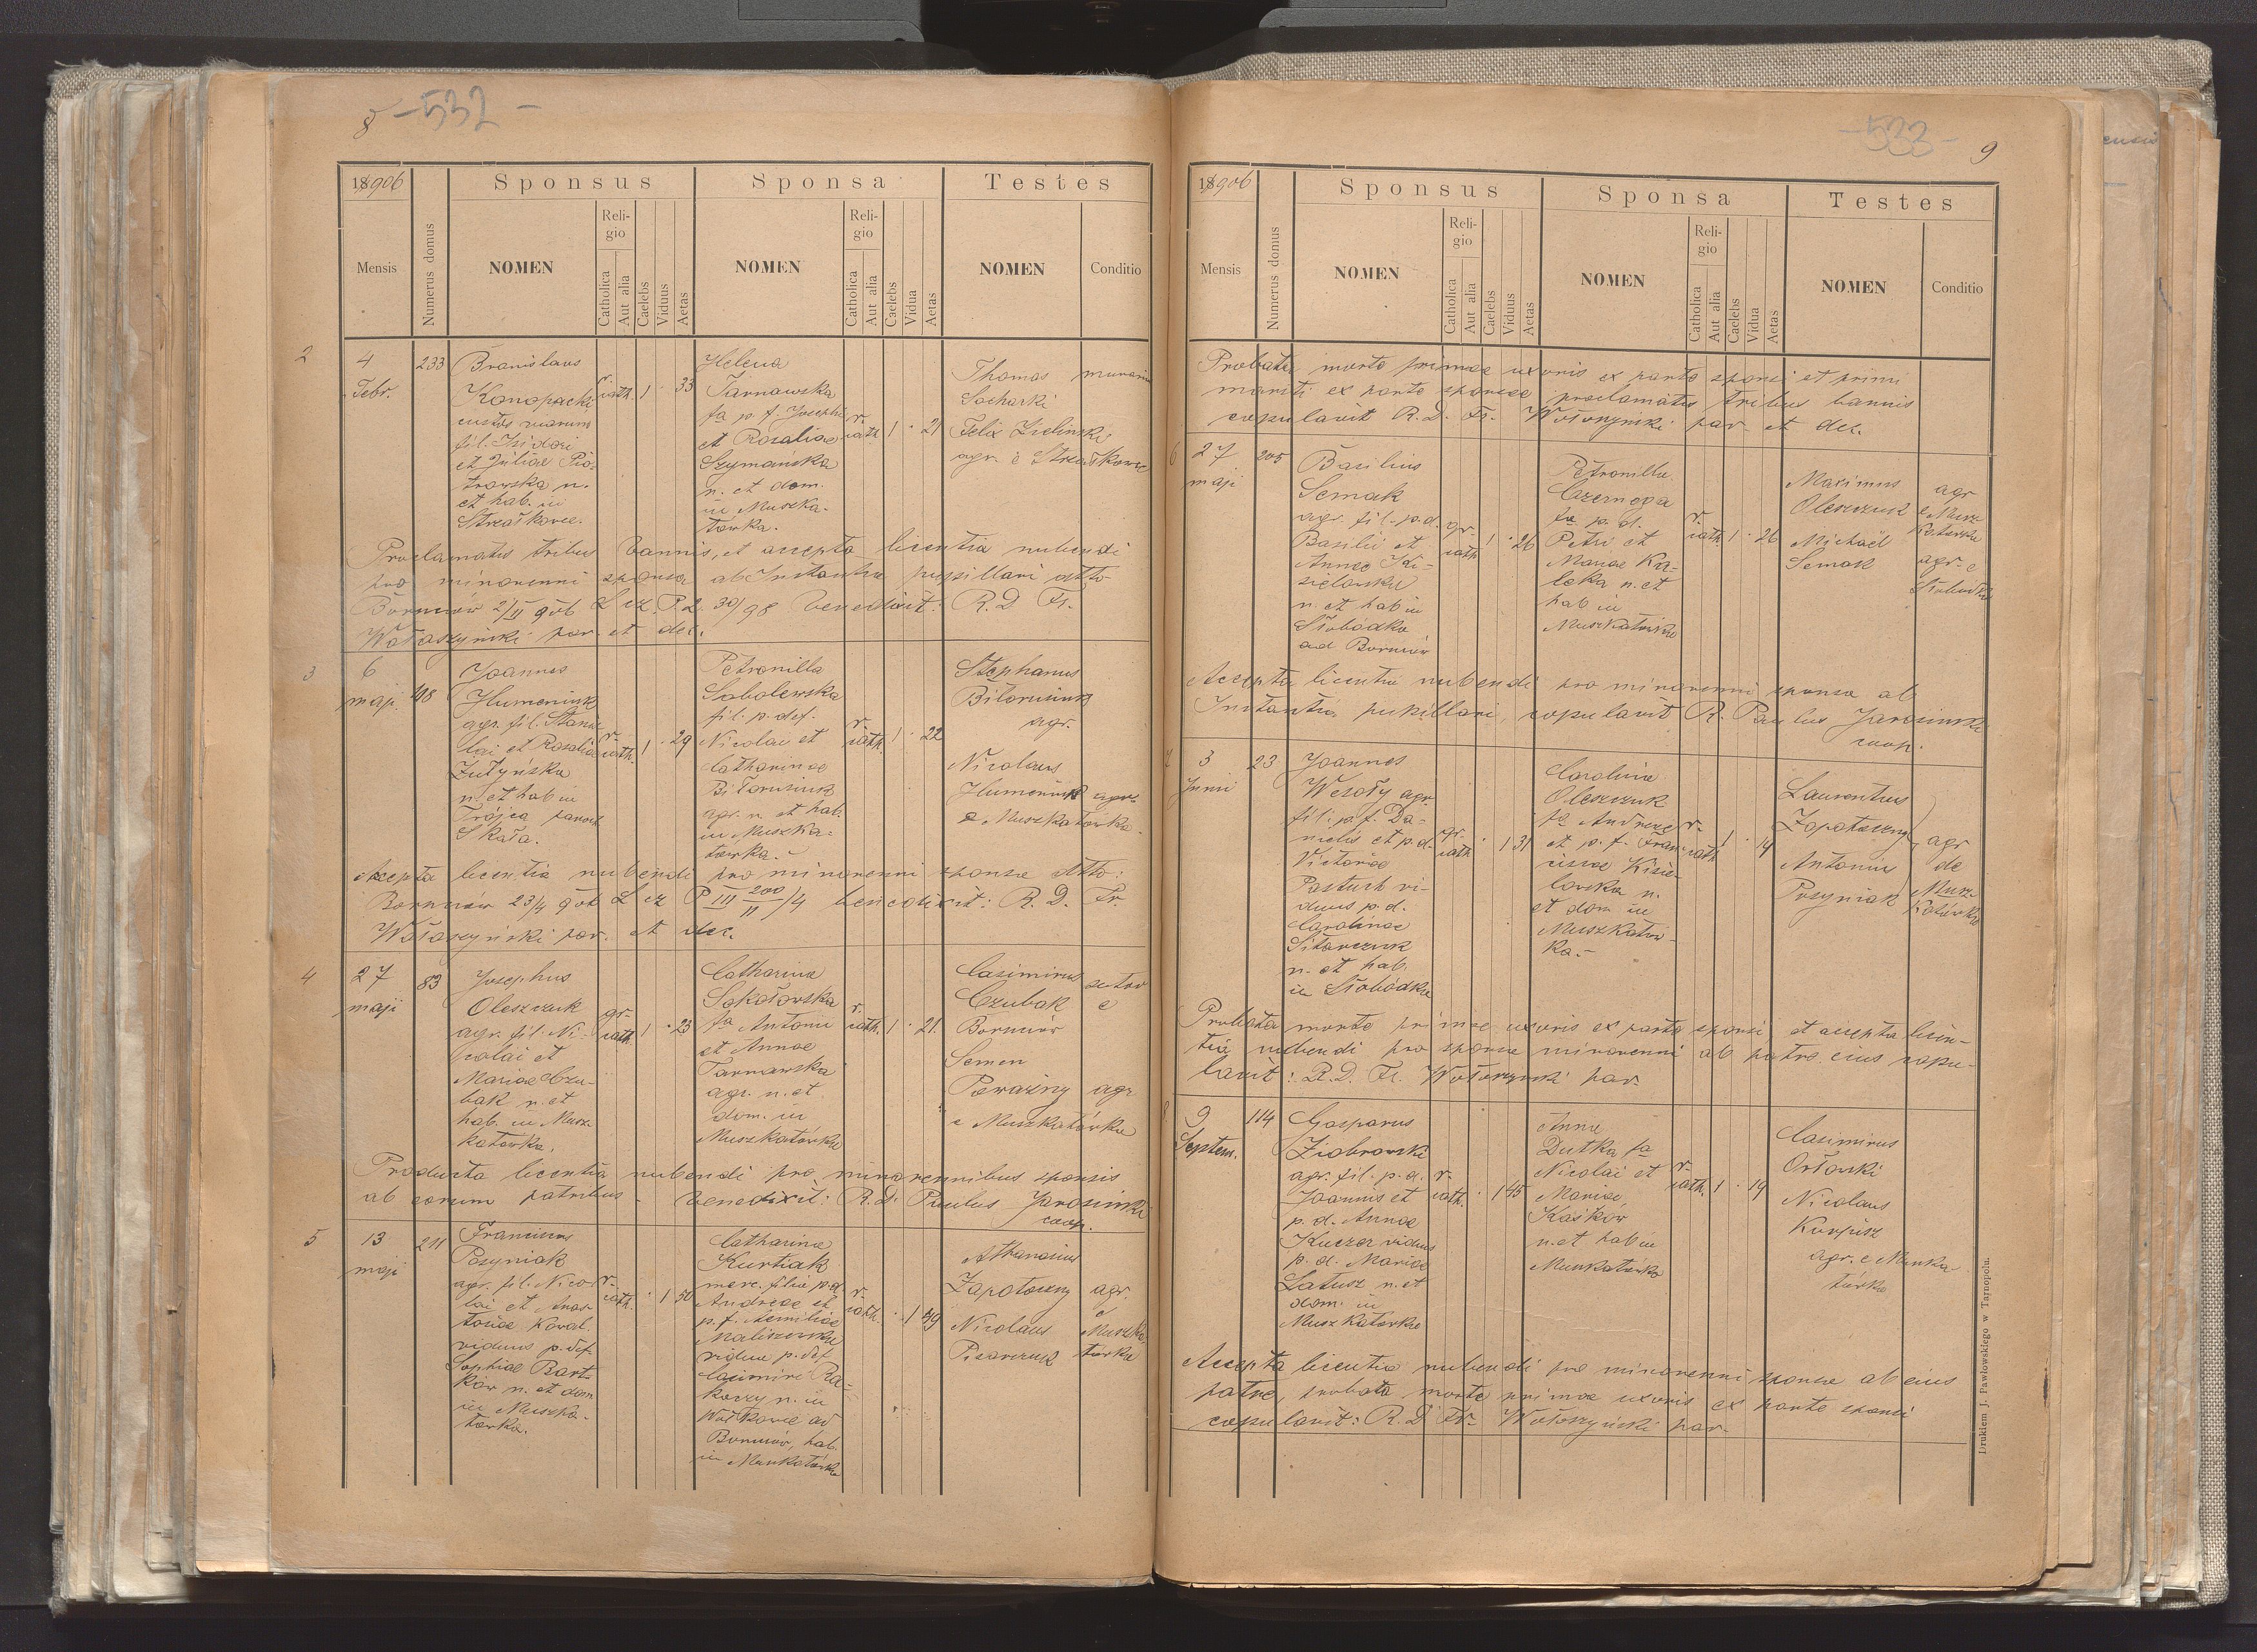 8 -532-
18906 Sponsus Sponsa Testes
Mensis Numerus domus NOMEN Religio Catholica Aut alia Caelebs Viduus Aetas NOMEN Religio Catholica Aut alia Caelebs Vidua Aetas NOMEN Conditio
2
4
Febr.
233
Bronislaus
Konopacki
custos viarum
fil. Isidori
et Juliae Pio-
trowska n.
et hab. in
Strzałkowce.
r.
cath. 1 33
Helena
Tarnawska
fa p. f. Josephi
et Rosaliae
Szymańska
n. et dom.
in Muszka-
tówka.
r.
cath. 1 . 21
Thomas
Socharki
Felix Zielinski
agr. e Strzałkowce
Proclamatis tribus bannis, et accepta licentia nubendi
pro minorenni sponsa ab Instantia pupillari dtto
Borszczów 2/II 906 L cz. P. 2. 30/98 benedixit: R. D. Fr.
Wołoszyński par. et dec.
3
6
maji
48
Joannes
Humeniuk
agr. fil. Stanis-
lai et Rosalia
Żułyńska
n. et hab in
Trójca paroch
Skała.
r.
cath. 1 . 29
Petronilla
Sobolewska
fil. p. def.
Nicolai et
Catharinae
Biłorusiuk
agr. n. et hab.
in Muszka-
tówka.
r.
cath. 1 . 22
Stephanus
Biłorusiuk
agr.
Nicolaus
Humeniuk agr.
e Muszkatówka.
Accepta licentia nubendi pro minorenni sponsa dtto:
Borszczów 23/4 906 L cz P III 200/II /4 benedixit: R. D. Fr.
Wołoszyński par. et dec.
4
27
maji
83
Josephus
Oleszczuk
agr. fil. Ni-
colai et
Mariae Czu-
bak n. et
hab. in Musz-
katówka.
gr.
cath. 1 . 23
Catharina
Sokołowska
fa Antonii
et Annae
Tarnawska
agr. n. et
dom. in
Muszkatówka
r.
cath. 1 . 21.
Casimirus sutor
Czubak e
Borszczów
Semen
Poważny agr
e Muszkatówka
Producta licentia nubendi pro minorennibus sponsis
ab eorum patribus benedixit: R. D. Paulus Jarosinski
coop.
5
13
maji
211
Franciscus
Posyniak
agr. fil. Nico-
lai et Anas-
tasiae Koval.
viduus p. def.
Sophiae Bart-
ków n. et dom
in Muszka-
tówka.
r.
cath. . 1 50
Catharina
Kurtiak
merc. filia p. d.
Andreae et
p. f. Aemiliae
Maliszewska
vidua p. def
Casimiri Ra-
koczy n. in
Wołkowce ad
Borszczów, hab.
in Muszkatówka
r.
cath. . 1 49
Athanasius
Zapotoczny agr.
e
Nicolaus Muszka-
Pisarczuk tówka
-533- 9
18906 Sponsus Sponsa Testes
Mensis Numerus domus NOMEN Religio Catholica Aut alia Caelebs Viduus Aetas NOMEN Religio Catholica Aut alia Caelebs Vidua Aetas NOMEN Conditio
Probata morte primae uxoris ex parte sponsi et primi
mariti ex parte sponsae proclamatis tribus bannis
copulavit R. D. Fr. Wołoszyński par et dec.
6
27
maji
205
Basilius
Semak
agr. fil. p. d.
Basilii et
Annae Ki-
sielowska
n. et hab in
Słobódka
ad Borszczów
gr.
cath. 1 . 26
Petronilla
Czernega
fa p. d.
Petri et
Mariae Ka-
leka n. et
hab in
Muszkatówka
r.
cath. 1 . 26
Maximus agr
Oleszczuk e Musz-
katówka
Michaël
Semak agr. e
Słobódka
Accepta licentia nubendi pro minorenni sponsa ab
Instantia pupillari, copulavit R. Paulus Jarosinski
coop.
7
3
Junii
23
Joannes
Wesoły agr.
fil. p. f. Da-
nielis et p. d.
Victoriae
Pastuch vi-
duus p. d.
Carolinae
Sitarczuk
n. et hab.
in Słobódka
gr.
cath. . 1 31
Carolina
Oleszczuk
fa Andreae
et p. f. Fran-
ciscae Kisie-
lowska n.
et dom in
Muszkatów-
ka.
r.
cath. 1 . 19
Laurentius
Zapotoczny
Antonius
Posyniak
agr
de
Musz-
katówka
Probata morte primae uxoris ex parte sponsi, et accepta licen-
tia nubendi pro sponsa minorenni ab patre eius copu-
lavit: R. D. Fr. Wołoszyński par
8
9
Septem.
114
Gasparus
Ziobrowski
agr. fil. p. d.
Joannis et
p. d. Annae
Kuczer viduus
p. d. Mariae
Łatusz n. et
dom. in
Muszkatówka
r.
cath. . 1 45
Anna
Dutka fa
Nicolai et
Mariae
Kaśków
n. et hab in
Muszkatówka
r.
cath. 1 . 19
Casimirus
Orłowski
Nicolaus
Karpisz
agr. e Muszka
tówka
Accepta licentia nubendi pro minorenni sponsa ab eius
patre, probata morte primae uxoris ex parte sponsi
copulavit: R. D Fr. Wołoszyński par
Drukiem J. Pawłowskiego w Tarnopolu.